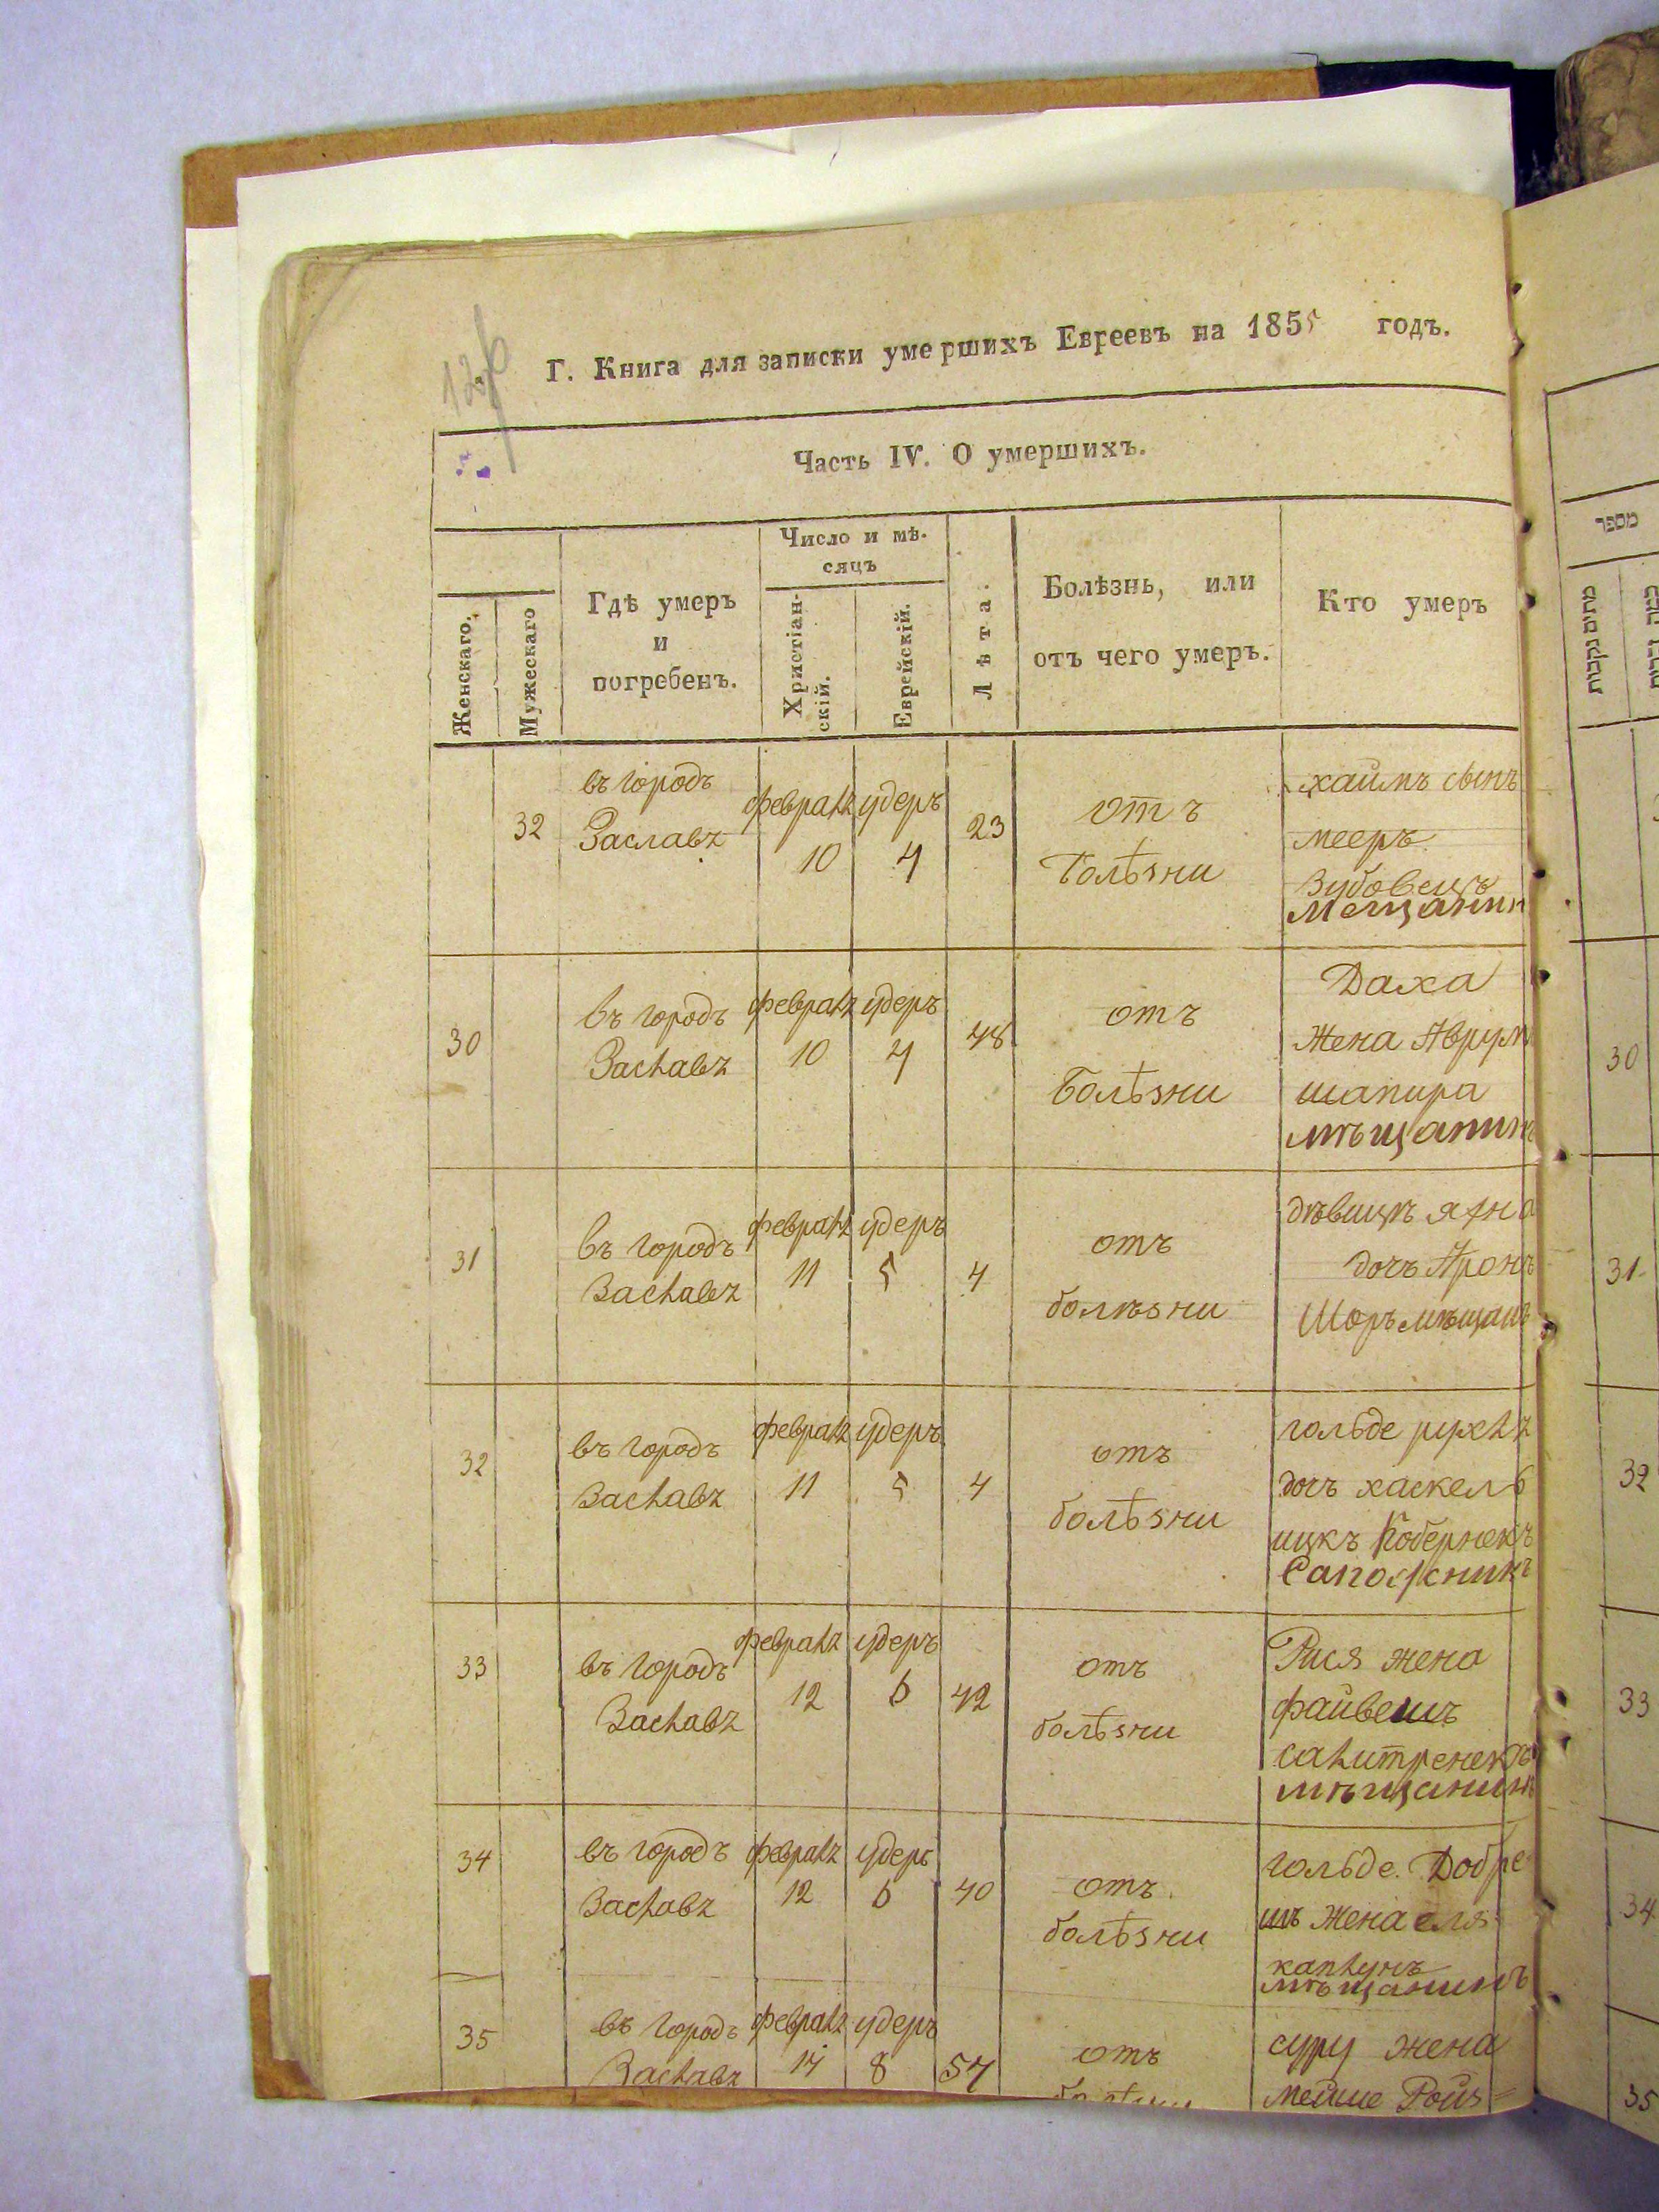 126
Г. Книга для записки умершихъ Евреевъ на 1855 годъ.
Часть IV. О умершихъ.
Женскаго.
Мужескаго
Гдѣ умеръ
и
погребенъ.
Число и мѣ-
сяцъ
Христіан-
скій.
Еврейскій.
Лѣта.
Болѣзнь, или
отъ чего умеръ.
Кто умеръ
32
въ городъ
Заславъ
февраль
10
удеръ
4
23
отъ
болѣзни
хаимъ сынъ
мееръ
Зубовецъ
мещанин
30
въ городъ
Заславъ
февраль
10
удеръ
4
48
отъ
болѣзни
Даха
жена Аврум
шапира
мѣщанин
31
въ городъ
Заславъ
февраль
11
удеръ
5
4
отъ
болѣзни
дочъ Аронъ
Шоръ мѣщан
32
въ городъ
Заславъ
февраль
11
удеръ
5
4
отъ
болѣзни
гольде рухль
дочъ хаскель
ицкъ
Сапожникъ
33
въ городъ
Заславъ
февраль
12
удеръ
6
42
отъ
болѣзни
Рися жена
файвешъ
мѣщанинъ
34
въ городъ
Заславъ
февраль
12
удеръ
6
40
отъ
болѣзни
гольде Добре
жена еля
каплунъ
мѣщанинъ
35
въ городъ
Заславъ
февраль
14
удеръ
8
57
отъ
суру жена
мейше Ройз=
מספר
מתים נקבות
30
31
32
33
34
35